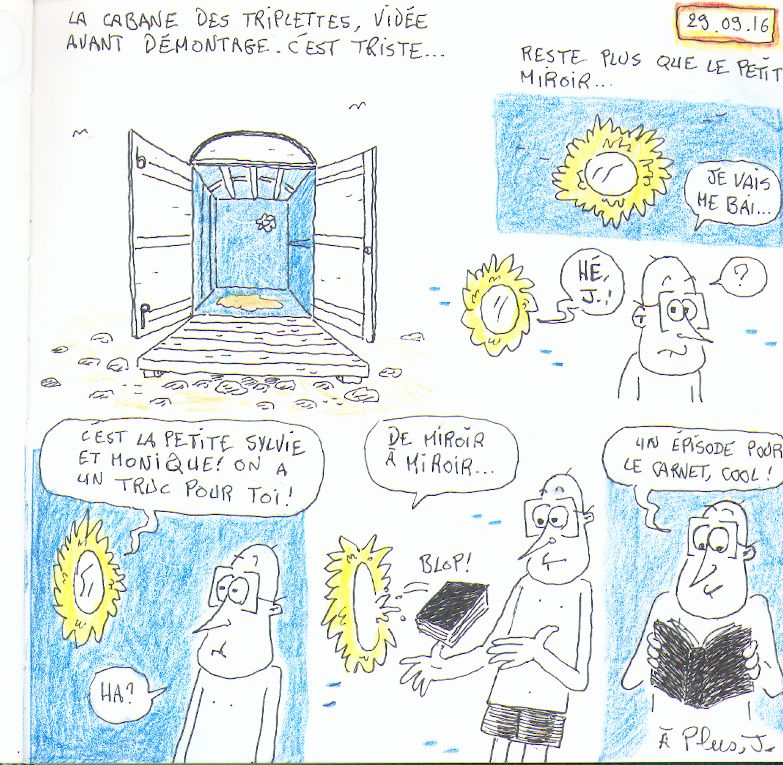 LA CABANE DES TRIPLETTES, VIDÉE
AVANT DÉMONTAGE. C'EST TRISTE...
29.09.16
RESTE PLUS QUE LE PETIT
MIROIR...
JE VAIS
ME BAI...
HÉ,
J.!
?
C'EST LA PETITE SYLVIE
ET MONIQUE! ON A
UN TRUC POUR TOI!
HA?
DE MIROIR
À MIROIR...
BLOP!
UN ÉPISODE POUR
LE CARNET, COOL!
À Plus, J.